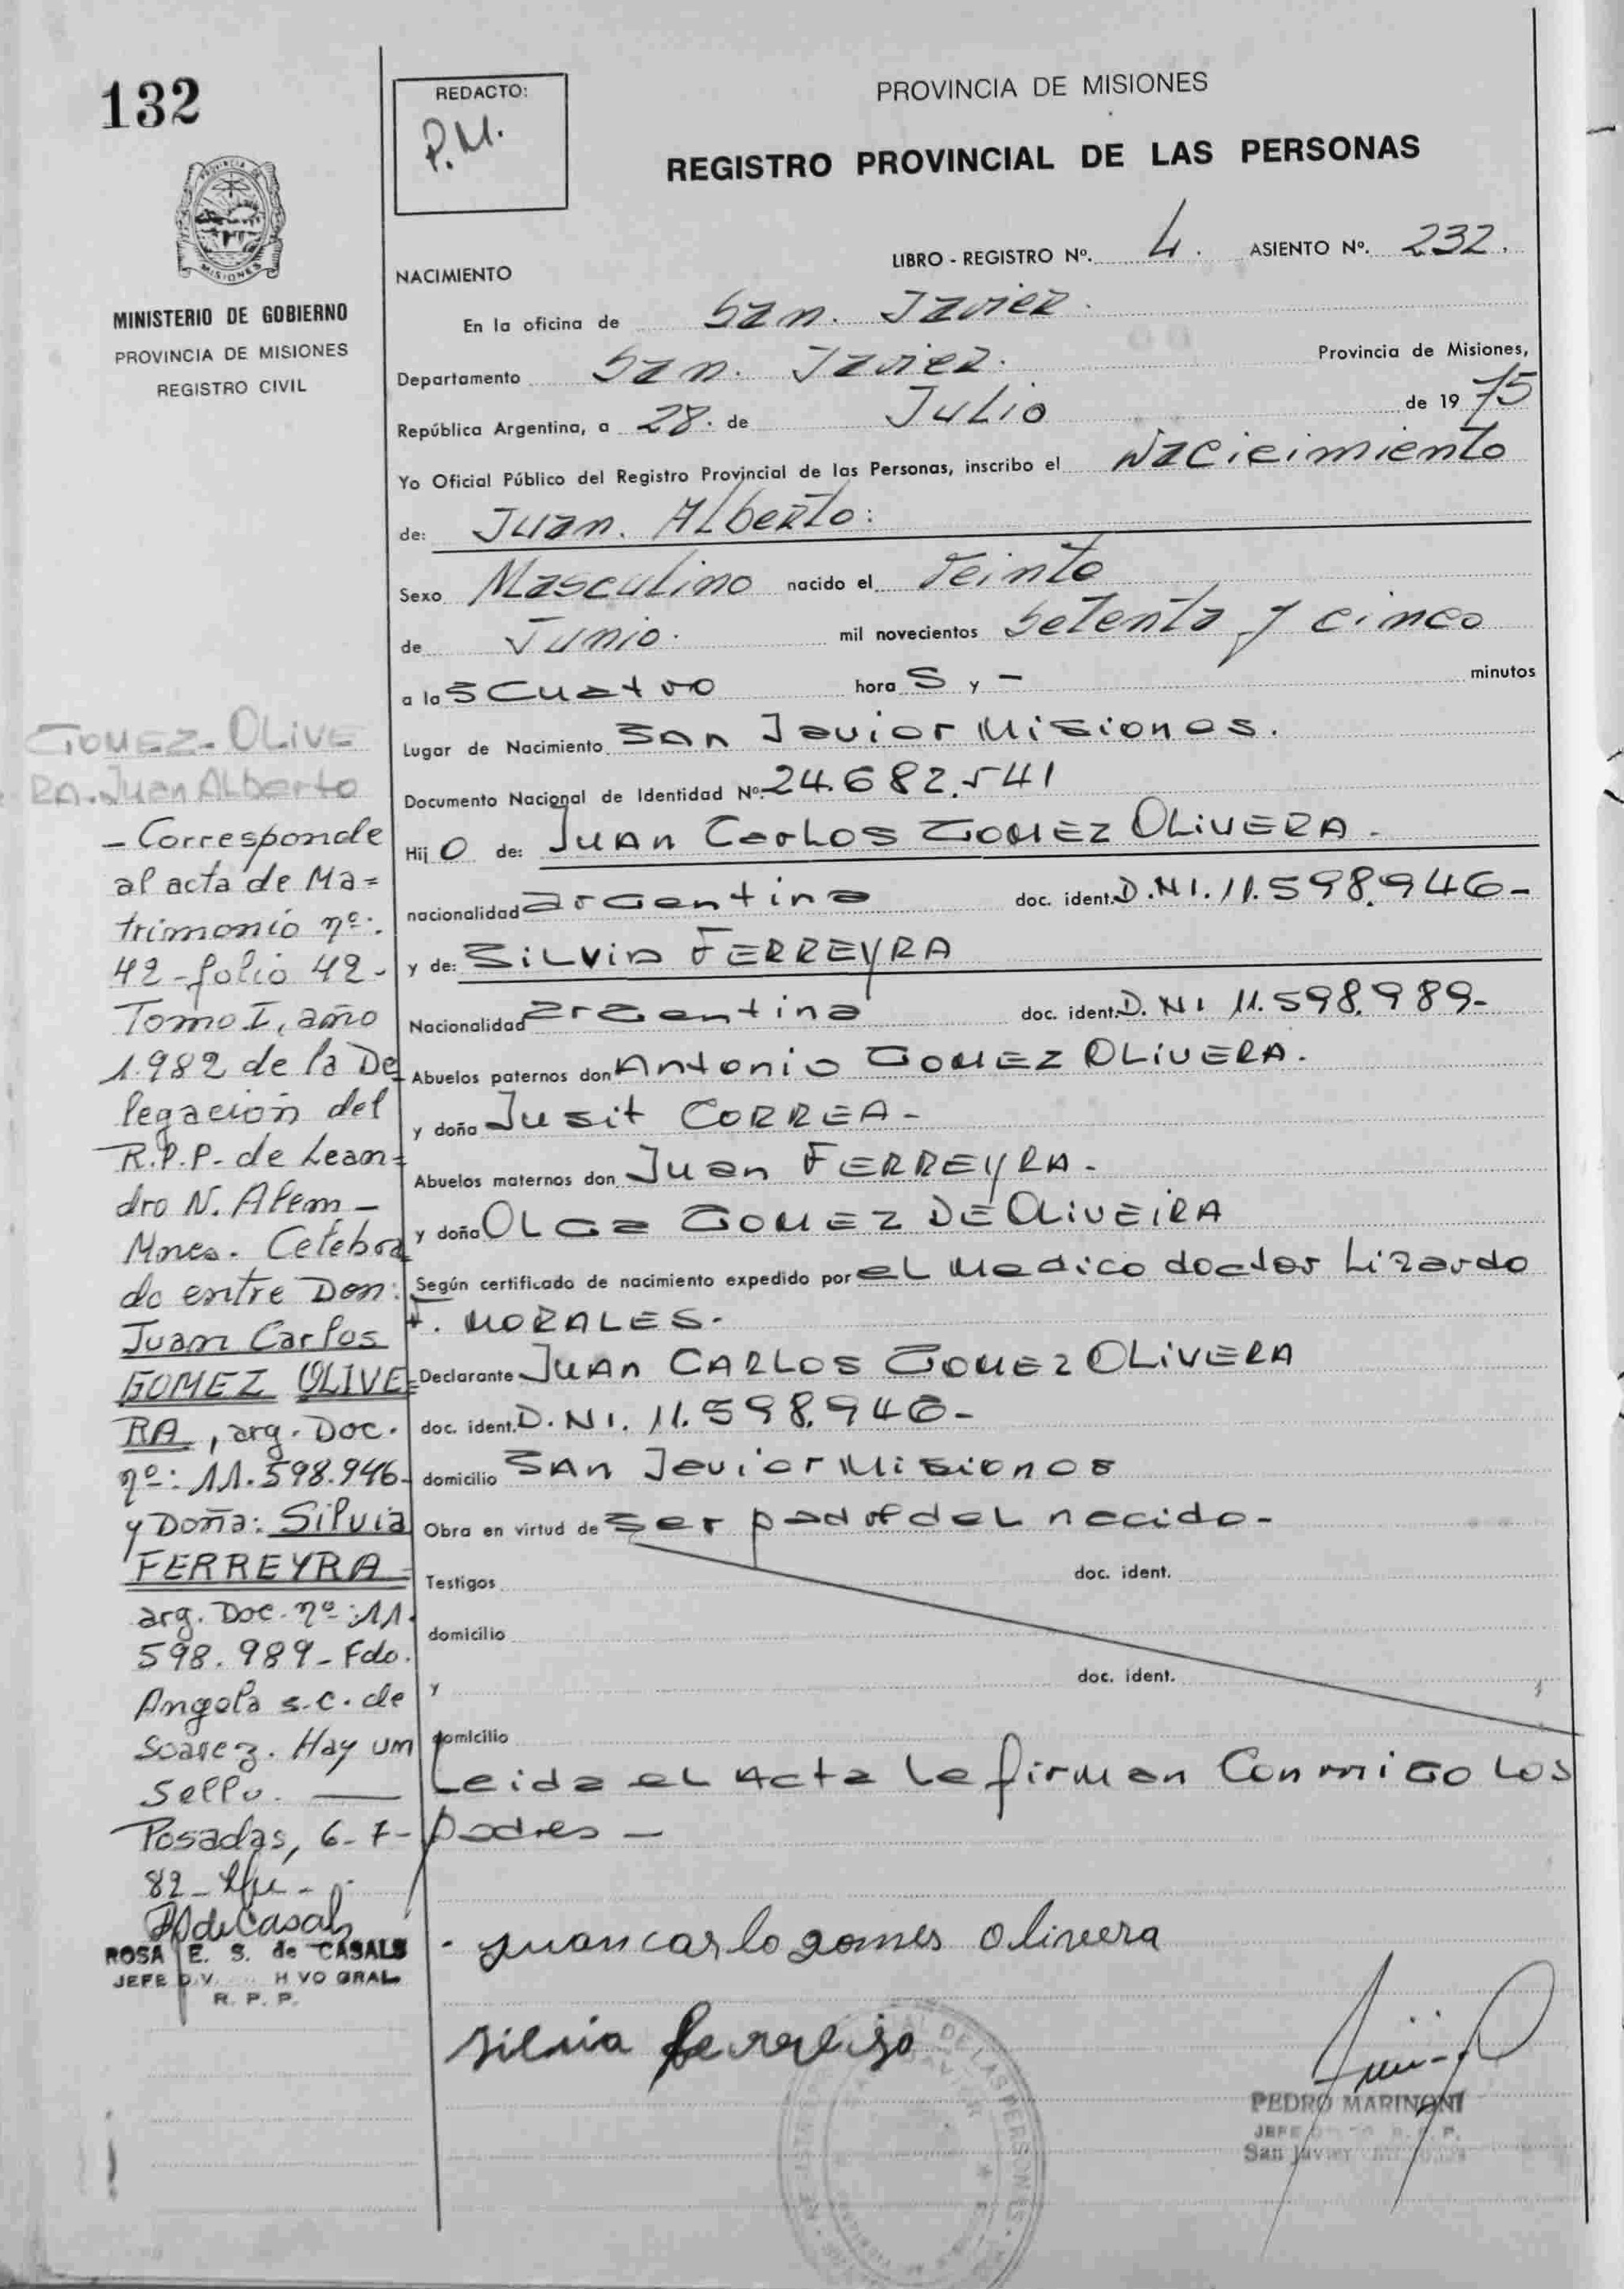 132
REDACTO:
P.M.
PROVINCIA DE MISIONES
REGISTRO PROVINCIAL DE LAS PERSONAS
MISIONES
MINISTERIO DE GOBIERNO
PROVINCIA DE MISIONES
REGISTRO CIVIL
LIBRO - REGISTRO Nº. 4. ASIENTO Nº. 232.
NACIMIENTO
En la oficina de San. Javier.
Departamento San. Javier. Provincia de Misiones,
República Argentina, a 28. de Julio de 1975
Yo Oficial Público del Registro Provincial de las Personas, inscribo el Nacieimiento
de: Juan. Alberto:
Sexo Masculino nacido el Veinte
de Junio. mil novecientos Setenta y cinco
a las cuatro horas y - minutos
Lugar de Nacimiento San Javier Misiones.
Documento Nacional de Identidad Nº. 24.682.541
Hijo de: Juan Carlos GOMEZ OLIVERA.
nacionalidad argentina doc. ident. D.NI. 11.598.946-
y de: Silvia FERREYRA
Nacionalidad argentina doc. ident. D.NI 11.598.989-
Abuelos paternos don Antonio GOMEZ OLIVERA.
y doña Jusit CORREA-
Abuelos maternos don Juan FERREYRA-
y doña OLGa GOMEZ DE OLIVEIRA
Según certificado de nacimiento expedido por el Medico doctor Lizardo
F. MORALES-
Declarante Juan CARLOS GOMEZ OLIVERA
doc. ident. D.NI. 11.598.946-
domicilio San Javier Misiones
Obra en virtud de ser padre del nacido-
Testigos doc. ident.
domicilio
y doc. ident.
domicilio
Leida el Acta le firman Conmigo los
padres -
juan carlo gomes olivera
silvia ferreira
PEDRO MARINONI
San Javier
GOMEZ-OLIVE
RA. Juan Alberto
- Corresponde
al acta de Ma=
trimonio nº:
42-folio 42-
Tomo I, año
1.982 de la De
legación del
R.P.P. de Lean=
dro N. Alem-
Mnes. Celebra
do entre Don:
Juan Carlos
GOMEZ OLIVE=
RA, arg. Doc.
nº: 11.598.946-
y Doña: Silvia
FERREYRA-
arg. Doc. nº: 11.
598.989- Fdo.
Angela s.c. de
Soarez. Hay um
Sello. —
Posadas, 6-7-
82-
R de Casals
ROSA E. S. de CASALS
JEFE DIV. H VO GRAL
R. P. P.